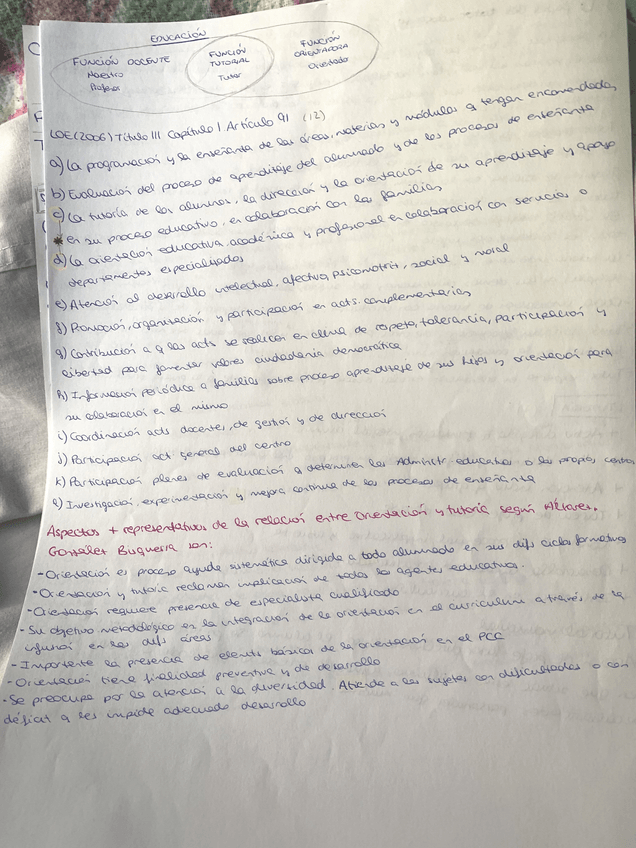 EDUCACIÓN
FUNCIÓN DOCENTE
Maestro
Profesor
FUNCIÓN
TUTORIAL
Tutor
FUNCIÓN
ORIENTADORA
Orientador
LOE (2006) Título III Capítulo I Artículo 91 (12)
a) La programación y la enseñanza de las áreas, materias y módulos q tengan encomendados
b) Evaluación del proceso de aprendizaje del alumnado y de los procesos de enseñanza
c) La tutoría de los alumnos, la dirección y la orientación de su aprendizaje y apoyo
* en su proceso educativo, en colaboración con las familias
d) La orientación educativa, académica y profesional en colaboración con servicios o
departamentos especializados
e) Atención al desarrollo intelectual, afectivo, psicomotriz, social y moral
f) Promoción, organización y participación en acts. complementarias
g) Contribución a q las acts se realicen en clima de respeto, tolerancia, participación y
libertad para fomentar valores ciudadanía democrática
h) Información periódica a familias sobre proceso aprendizaje de sus hijos y orientación para
su colaboración en el mismo
i) Coordinación acts docentes, de gestión y de dirección
j) Participación act general del centro
k) Participación planes de evaluación q determinen las Administr. educativas o los propios centros
l) Investigación, experimentación y mejora continua de los procesos de enseñanza
Aspectos + representativos de la relación entre Orientación y tutoría según Álvarez,
González Bisquerra son:
- Orientación es proceso ayuda sistemática dirigida a todo alumnado en sus difs ciclos formativos
- Orientación y tutoría reclaman implicación de todos los agentes educativos.
- Orientación requiere presencia de especialista cualificado
- Su objetivo metodológico es la integración de la orientación en el curriculum a través de la
infusión en las difs áreas
- Importante la presencia de elemts básicos de la orientación en el PCC
- Orientación tiene finalidad preventiva y de desarrollo
- Se preocupa por la atención a la diversidad. Atiende a los sujetos con dificultades o con
déficit q les impide adecuado desarrollo